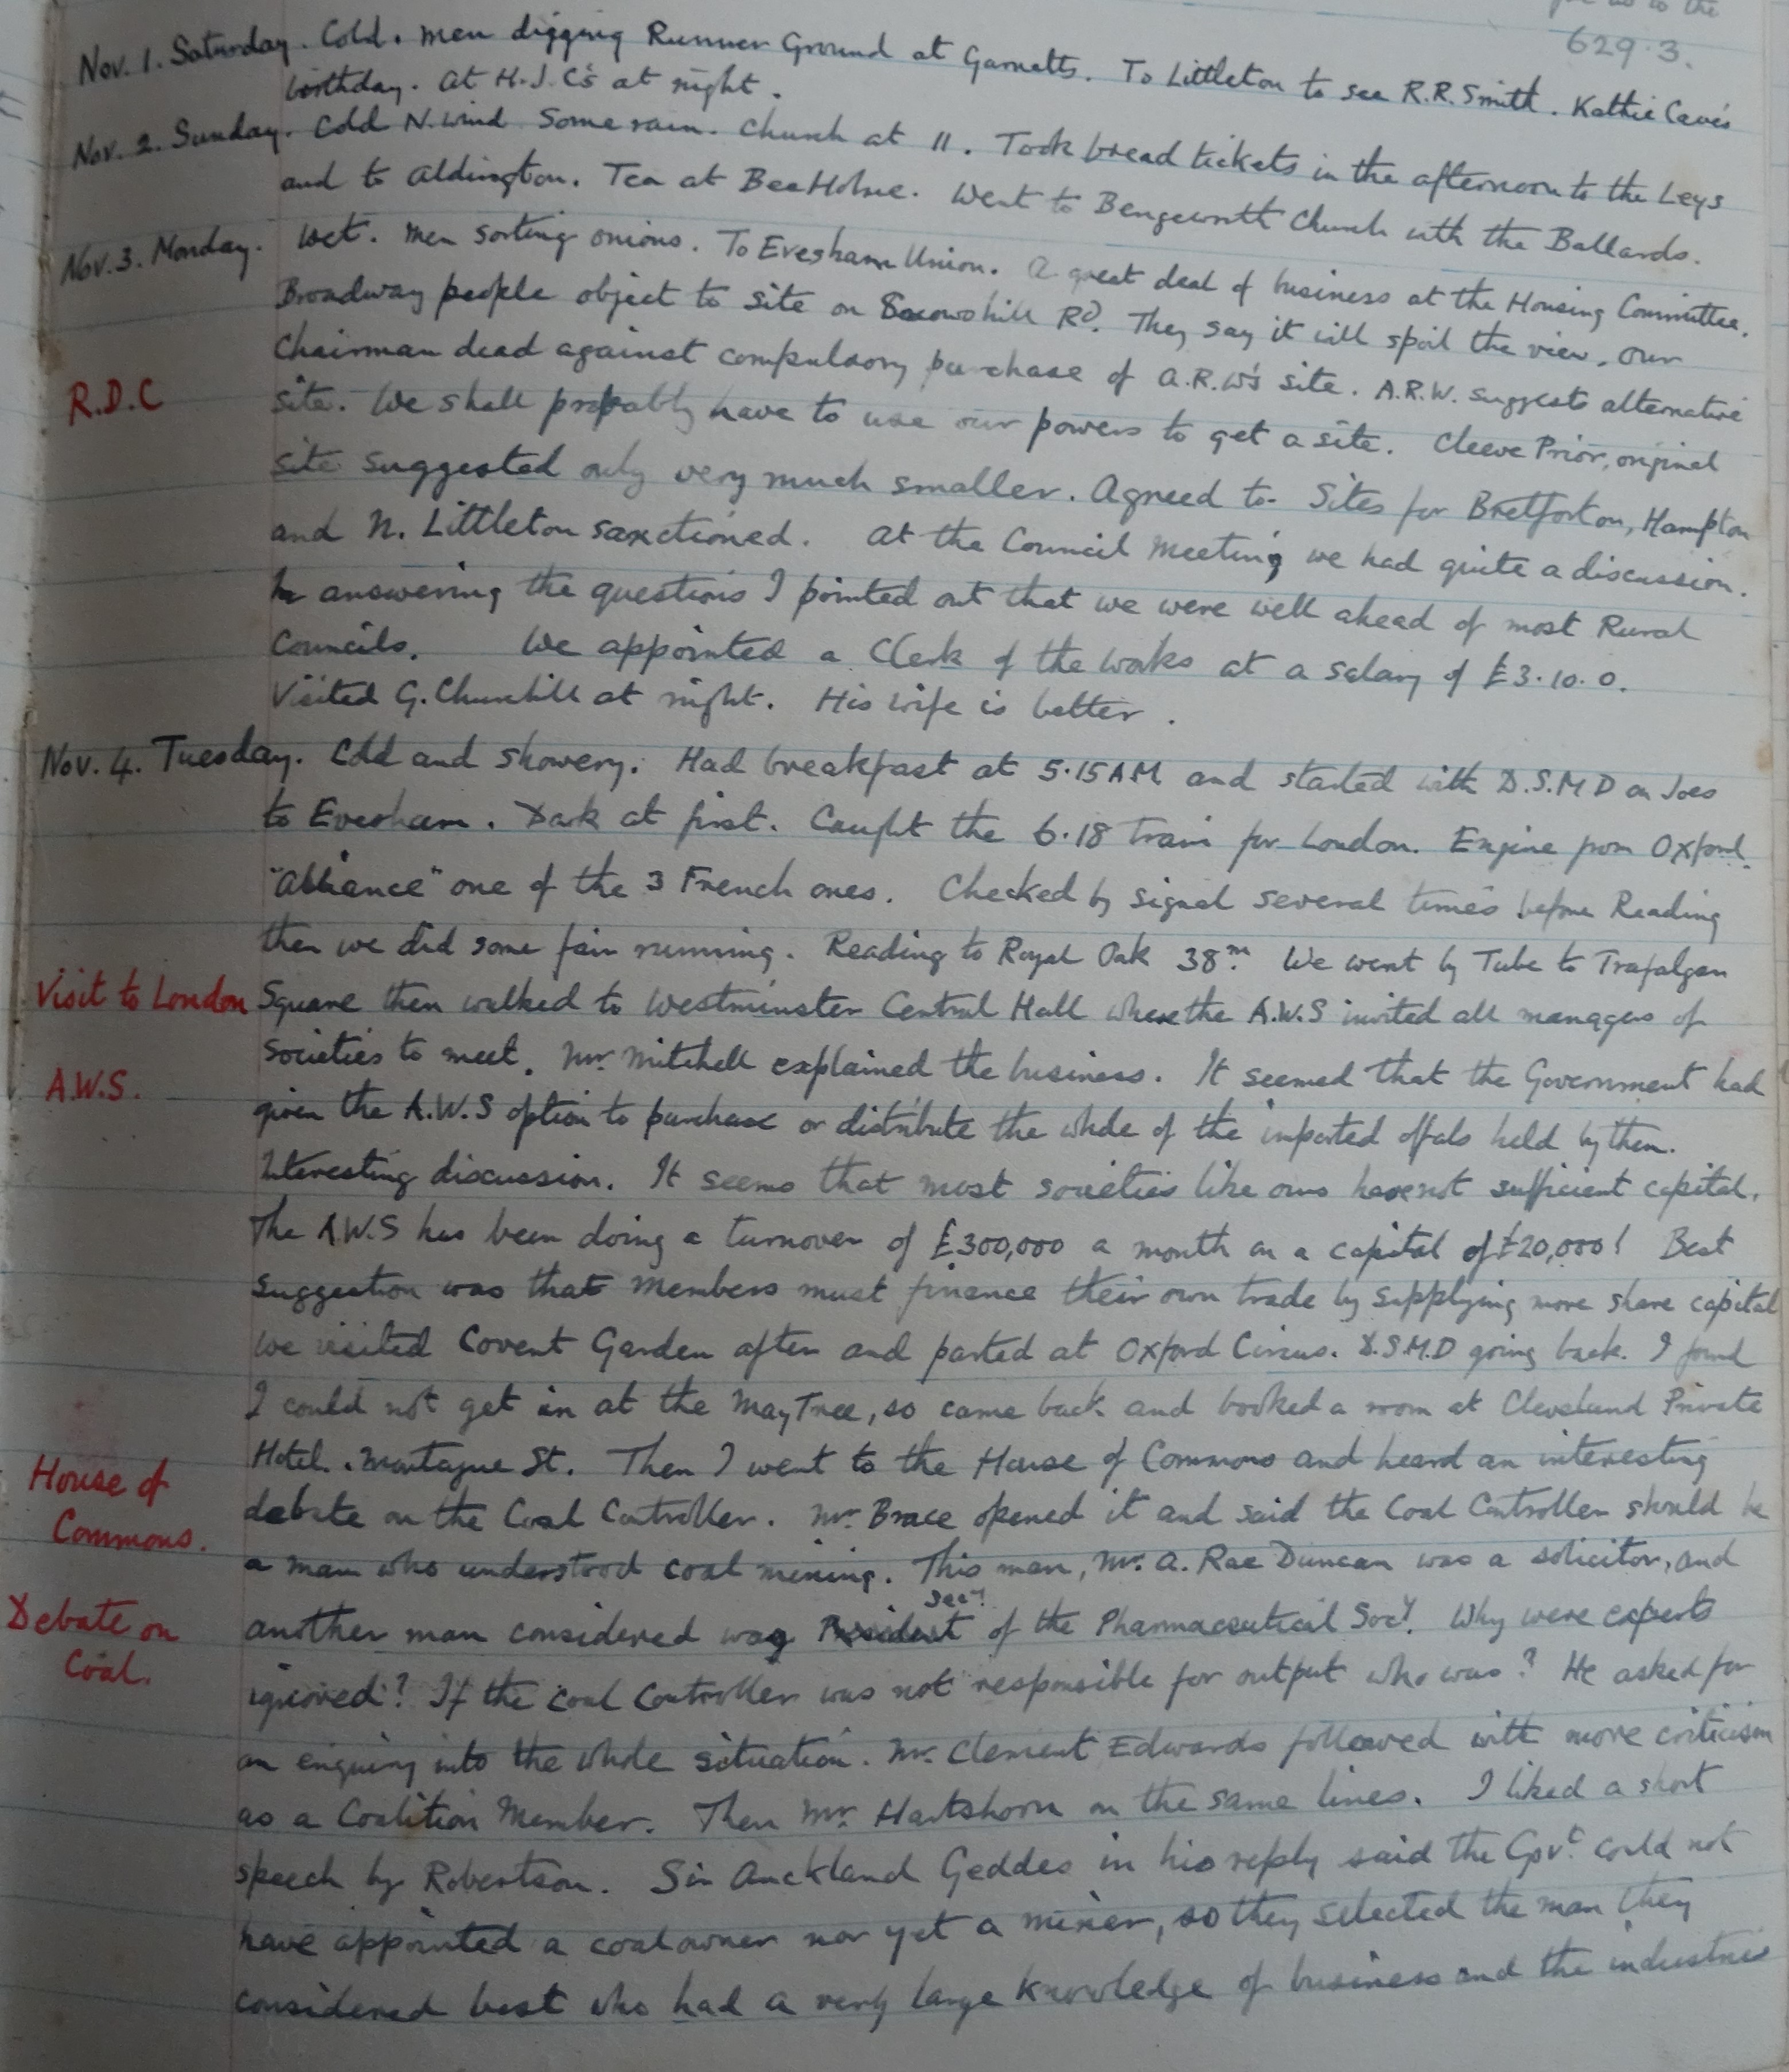 to the
629.3.
Nov. 1. Saturday. Cold. Men digging Runner Ground at Garnetts. To Littleton to see R.R. Smith. Kathie Cave's
birthday. At H.J.C's at night.
Nov. 2. Sunday. Cold N. wind. Some rain. Church at 11. Took bread tickets in the afternoon to the Leys
and to Aldington. Tea at Bee Holme. Went to Bengeworth Church with the Ballards.
Nov. 3. Monday. Wet. Men sorting onions. To Evesham Union. A great deal of business at the Housing Committee.
Broadway people object to site on Snowshill Rd. They say it will spoil the view. Our
Chairman dead against compulsory purchase of A.R.W's site. A.R.W. suggests alternative
R.D.C
site. We shall probably have to use our powers to get a site. Cleeve Prior, original
site suggested only very much smaller. Agreed to. Sites for Bretforton, Hampton
and N. Littleton sanctioned. At the Council Meeting we had quite a discussion.
In answering the questions I pointed out that we were well ahead of most Rural
Councils. We appointed a Clerk of the Works at a salary of £3.10.0.
Visited G. Churchill at night. His wife is better.
Nov. 4. Tuesday. Cold and showery. Had breakfast at 5.15 AM and started with D.S.M.D on Joes
to Evesham. Dark at first. Caught the 6.18 train for London. Engine from Oxford
"Alliance" one of the 3 French ones. Checked by signal several times before Reading
then we did some fair running. Reading to Royal Oak 38m. We went by Tube to Trafalgar
Visit to London
Square then walked to Westminster Central Hall where the A.W.S invited all managers of
societies to meet. Mr. Mitchell explained the business. It seemed that the Government had
A.W.S.
given the A.W.S option to purchase or distribute the whole of the imported offals held by them.
Interesting discussion. It seems that most societies like ours have not sufficient capital.
The A.W.S has been doing a turnover of £300,000 a month on a capital of £20,000! Best
suggestion was that members must finance their own trade by supplying more share capital
We visited Covent Garden after and parted at Oxford Circus. D.S.M.D going back. I found
I could not get in at the May Tree, so came back and booked a room at Cleveland Private
Hotel. Montague St. Then I went to the House of Commons and heard an interesting
House of
Commons.
debate on the Coal Controller. Mr. Brace opened it and said the Coal Controller should be
a man who understood coal mining. This man, Mr. A. Rae Duncan was a solicitor, and
Debate on
Coal.
Secy.
another man considered was President of the Pharmaceutical Socy. Why were experts
ignored? If the Coal Controller was not responsible for output who was? He asked for
an enquiry into the whole situation. Mr. Clement Edwards followed with more criticism
as a Coalition Member. Then Mr. Hartshorn on the same lines. I liked a short
speech by Robertson. Sir Auckland Geddes in his reply said the Govt. could not
have appointed a coalowner nor yet a miner, so they selected the man they
considered best who had a very large knowledge of business and the industries